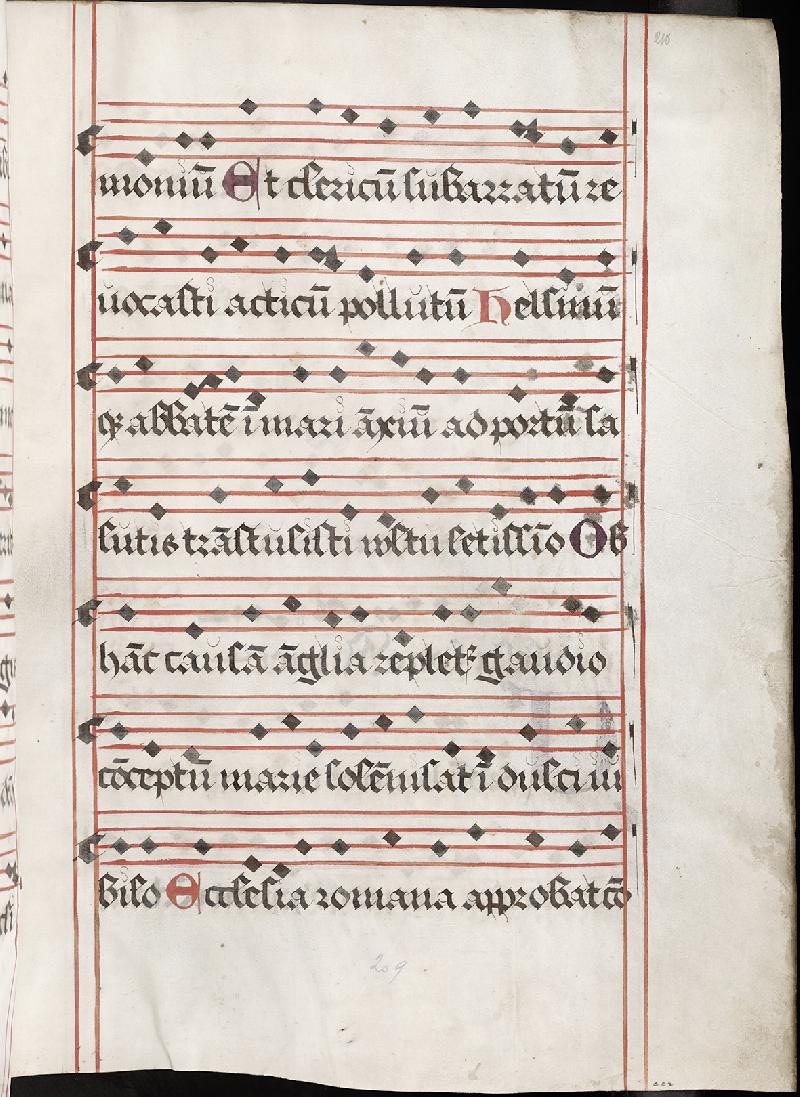 210
moniū Et clericū subarratū re
uocasti acticū pollutū Helsinū
qꝫ abbatē ī mari āxiū ad portū sa
lutis trāstulisti letissīo Ob
hāc causā āglia repletꝫ gaudio
cōceptū marie solēnisat ī dulci iu
bilo Ecclesia romana approbat cō
209